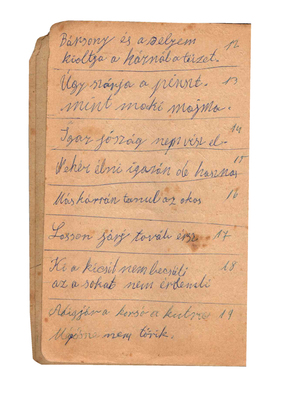 Bársony és a Selyem 12
kioltja a háznál a tüzet.
Úgy szórja a pénzt. 13
mint maki majma.
Igaz jószág nem vész el. 14
Nehéz élni igazán de hasznos 15
Más kárán tanul az okos 16
Lassan járj tovább érsz 17
Ki a kicsit nem becsüli 18
az a sokat nem érdemli
Addig jár a korsó a kútra 19
Míg nem törik.